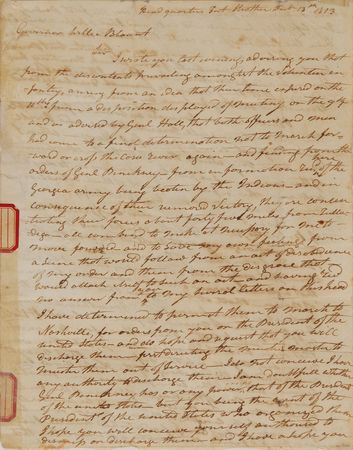 Headquarters Fort Strother Decr 13th 1813
Governor Willie Blount
Sir I wrote you last evening advising you that
from the discontent prevailing amongst the volunteer in
fantry, arising from an idea that their time expired on the
10th from a disposition displayed of mutiny on the 9th
and as advised by Genl Hall, that both officers and men
had come to a final determination not to march for
ward or cross the Coosa River again and from the
orders of Genl Pinckney from information of the
Georgia army being beaten by the Indians and in
consequence of their victory, they are concen
trating their force about forty five miles from
all combined to make it necessary for me to
move forward and to save my own from
a scene that would follow from an act of disobedience
of my order and them from the disgrace that
would attach itself to such an act and having recd
no answer from you to my several letters on this head
I have determined to permit them to march to
Nashville, for orders from you or the President of the
United States and do hope and request that you will
discharge them first directing the muster master to
muster them out of service I do not conceive I have
any authority to discharge them. I am doubtful whether
Genl Pinckney has or any power, but the President
of the united states but you being the agent of the
President of the united States who organized them
I hope you will conceive yourself authorised to
dismiss or discharge them and I have a hope you